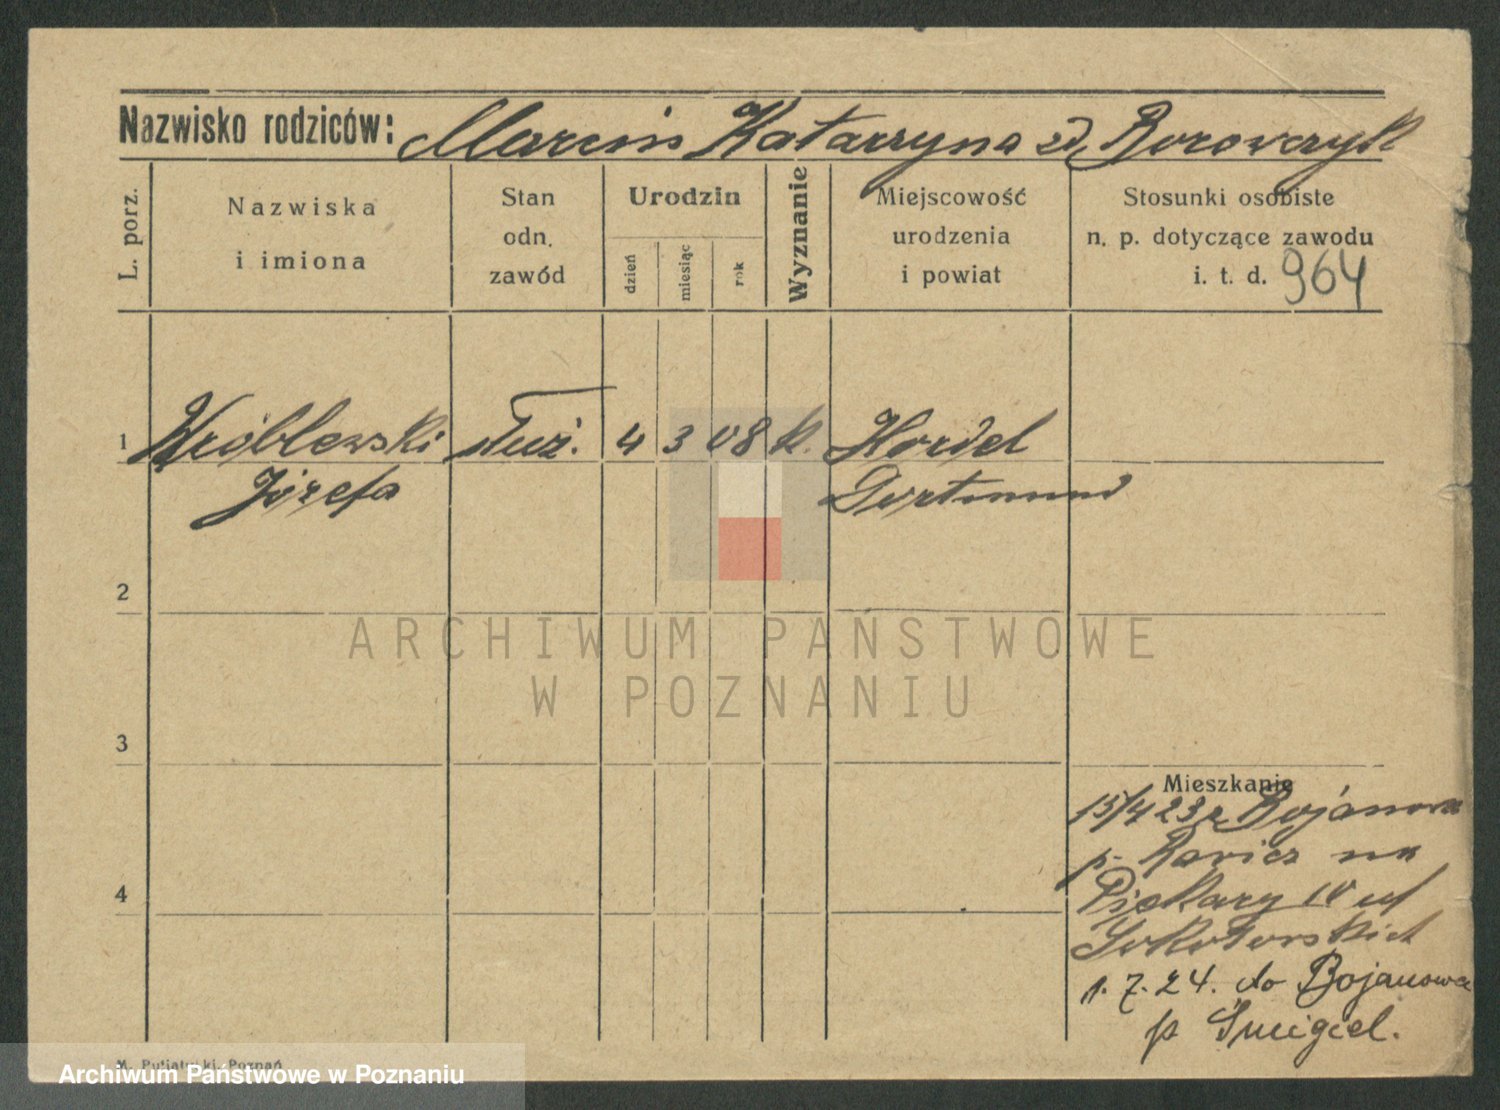 Nazwisko rodziców: Marcin Katarzyna zd Borowczyk
L. porz.
Nazwiska
i imiona
Stan
odn.
zawód
Urodzin
dzień
miesiąc
rok
Wyznanie
Miejscowość
urodzenia
i powiat
Stosunki osobiste
n. p. dotyczące zawodu
i. t. d. 964
1 Wróblewski służ. 4 3 08 k. Hordel
Józefa Dortmund
2
ARCHIWUM PAŃSTWOWE
W POZNANIU
3
Mieszkanie
15/4 23 z Bojanowa
p. Rawicz na
Piekary IV u
1. 7. 24. do Bojanowa
p Śmigiel.
4
Poznań
Archiwum Państwowe w Poznaniu